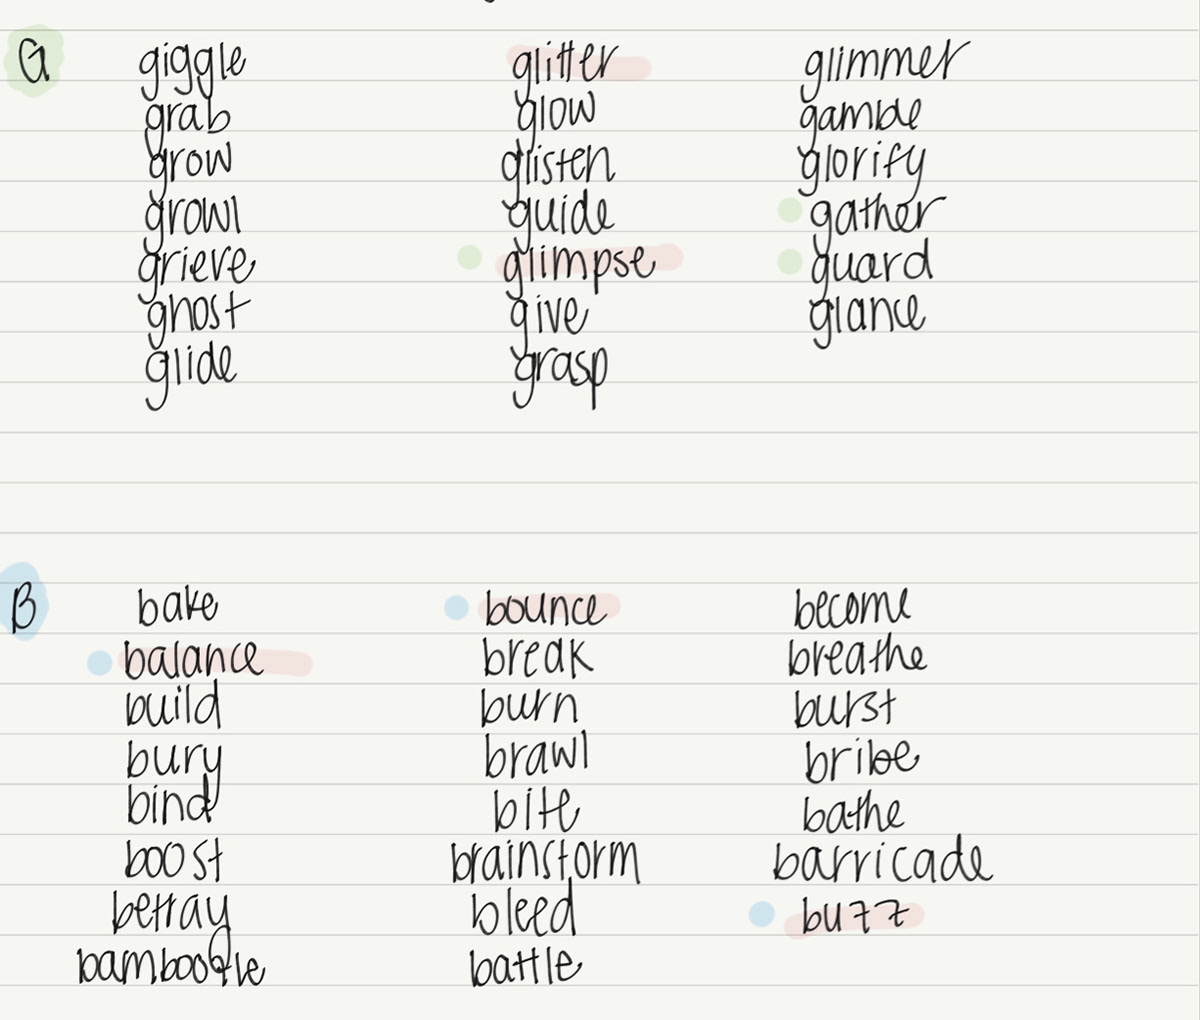 G giggle glitter glimmer
grab glow gamble
grow glisten glorify
growl guide gather
grieve glimpse guard
ghost give glance
glide grasp
B bake bounce become
balance break breathe
build burn burst
bury brawl bribe
bind bite bathe
boost brainstorm barricade
betray bleed buzz
bamboozle battle